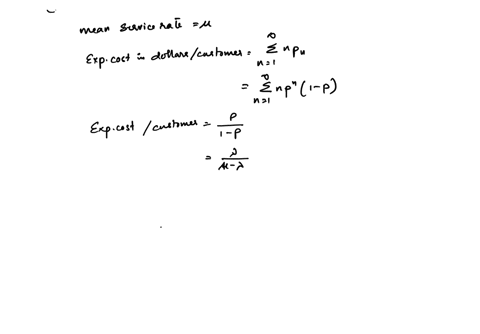 mean service rate = μ
Exp. cost in dollars/customer = ∞∑n=1 n pn
= ∞∑n=1 n ρ^n (1-ρ)
Exp. cost /customer = ρ/(1-ρ)
= λ/(μ-λ)